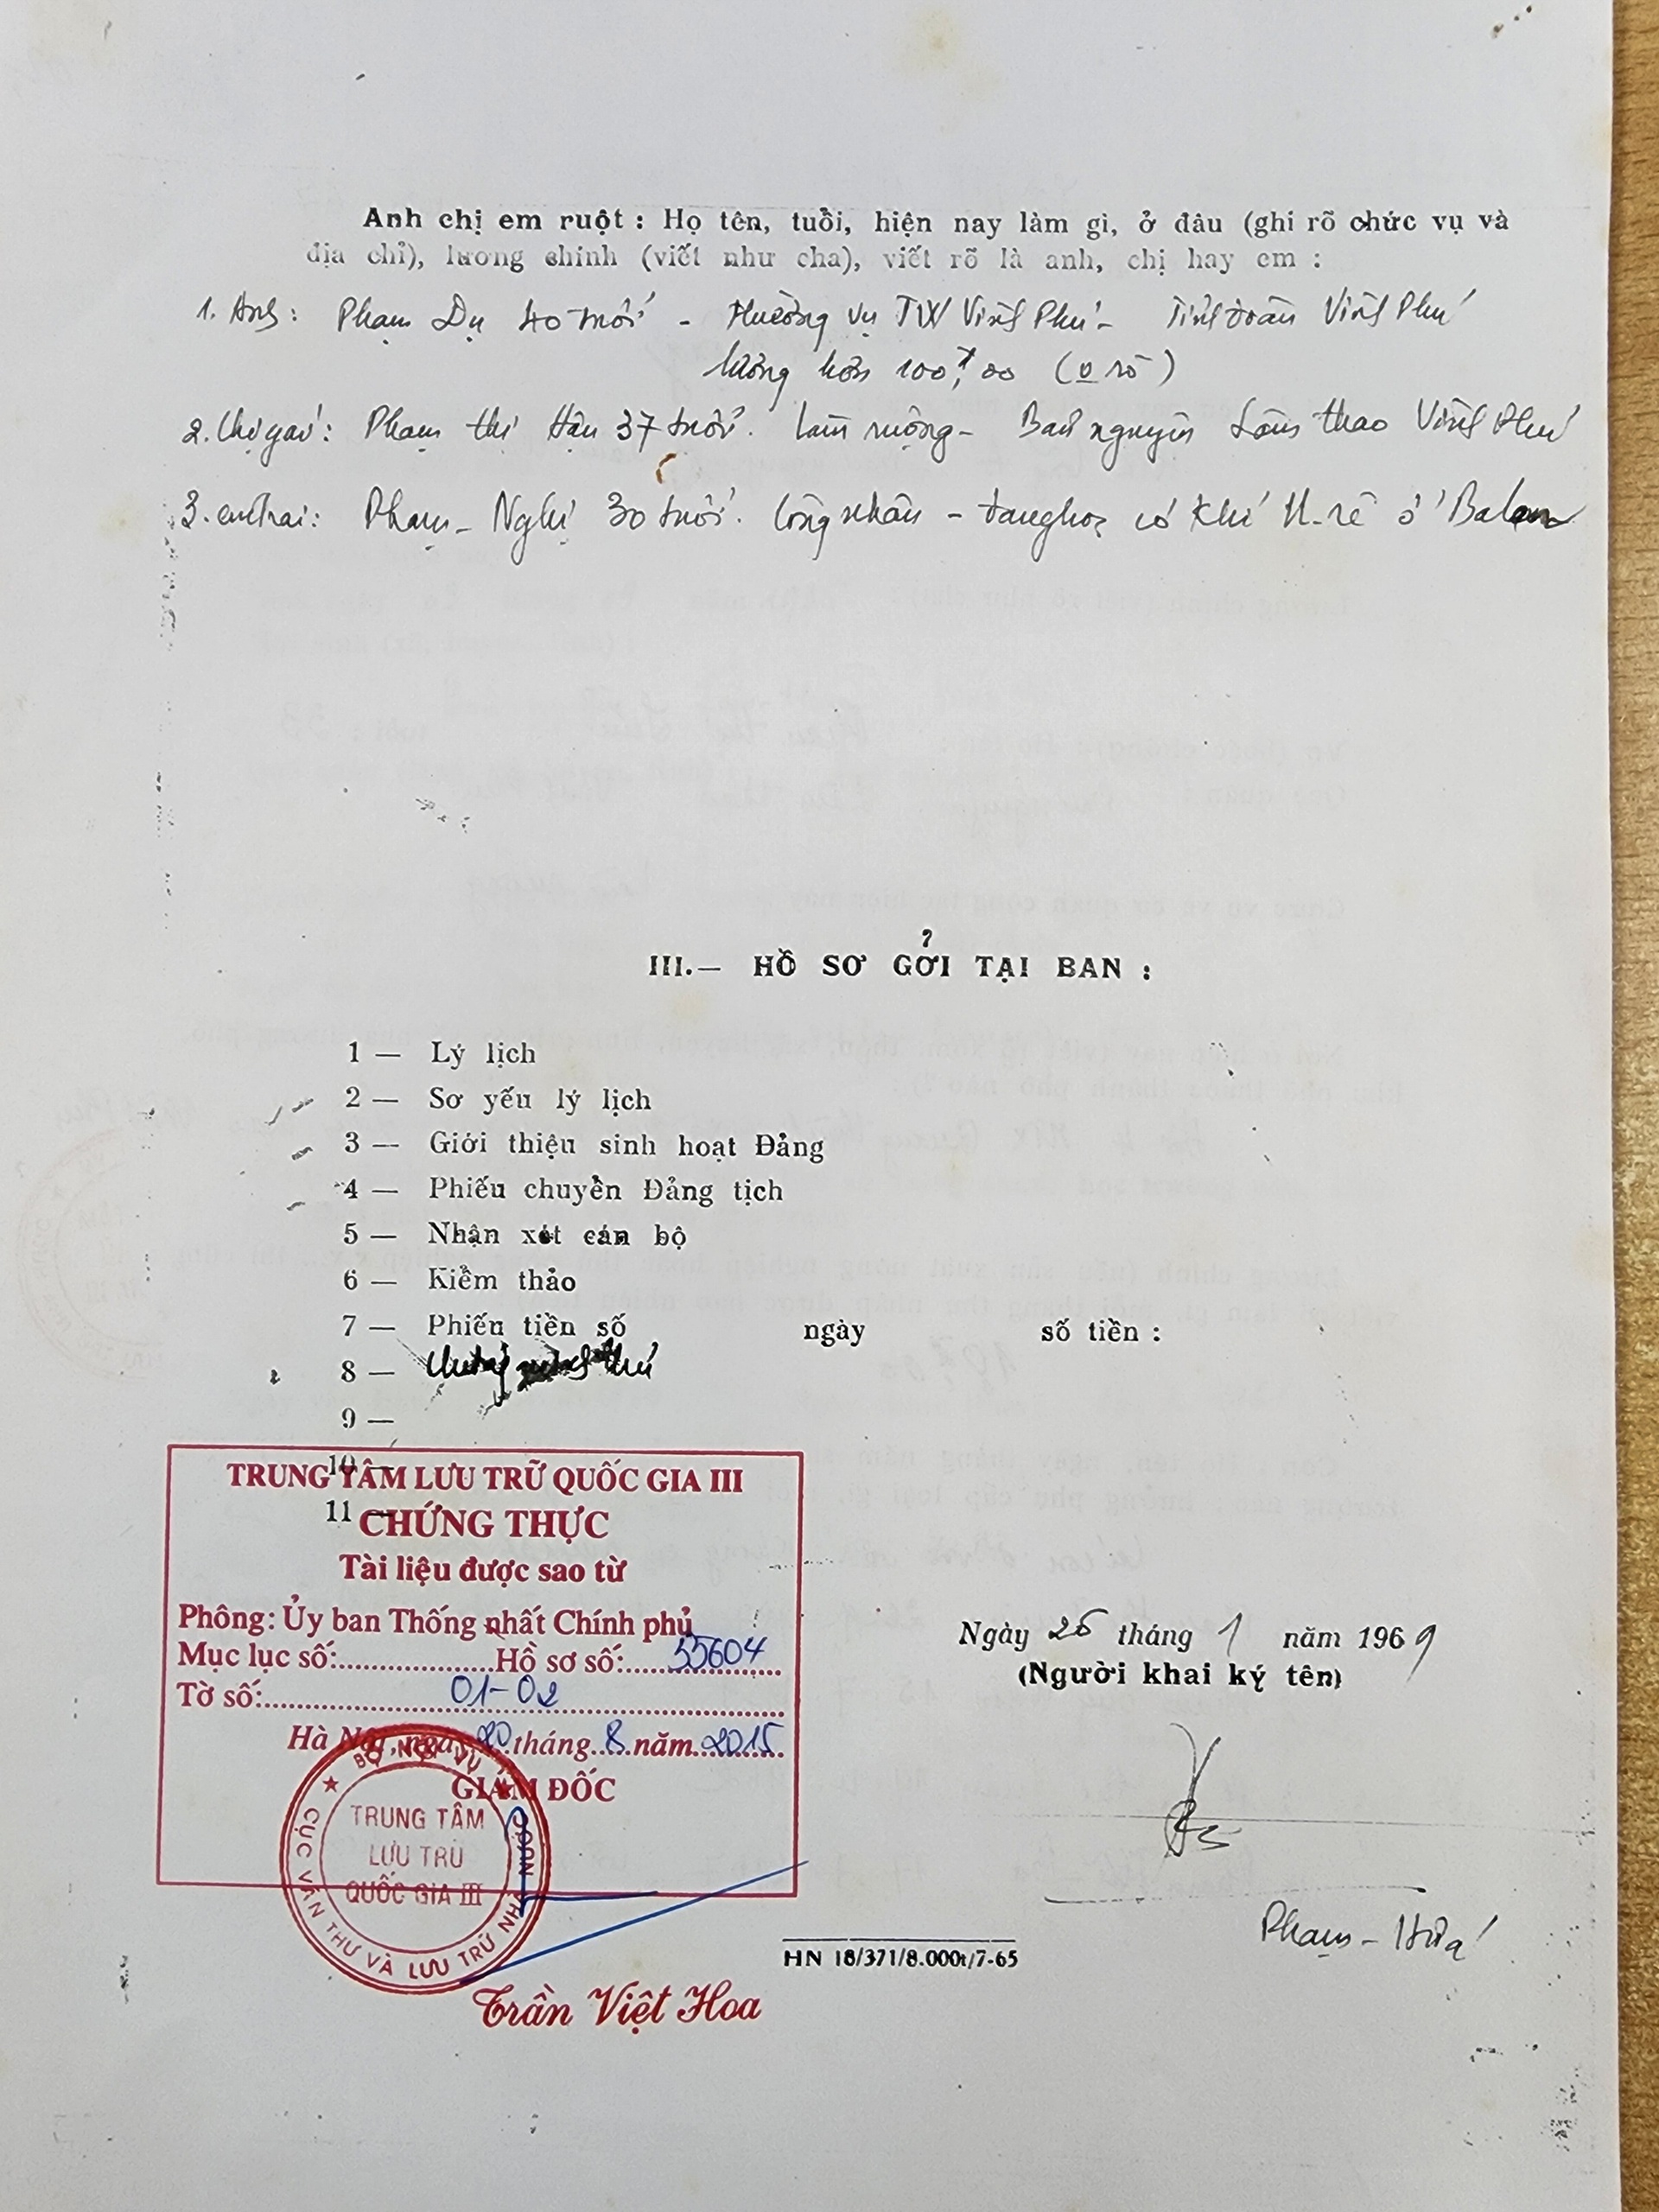 Anh chị em ruột : Họ tên, tuổi, hiện nay làm gì, ở đâu (ghi rõ chức vụ và
địa chỉ), lương chính (viết như cha), viết rõ là anh, chị hay em :
1. Anh : Phạm Dụ 40 tuổi - Thường vụ TW Vĩnh Phú - Tỉnh đoàn Vĩnh Phú
lương hơn 100đ,00 (0 rõ)
2. Chị gái : Phạm thị Hậu 37 tuổi. Làm ruộng - nguyên Lâm thao Vĩnh Phú
3. em trai : Phạm - Nghị 30 tuổi. Công nhân - đang học cơ khí ở Balan
III.— HỒ SƠ GỞI TẠI BAN :
1 — Lý lịch
2 — Sơ yếu lý lịch
3 — Giới thiệu sinh hoạt Đảng
4 — Phiếu chuyển Đảng tịch
5 — Nhận xét cán bộ
6 — Kiểm thảo
7 — Phiếu tiền số ngày số tiền :
8 — Chứng minh thư
9 —
10 —
11 —
TRUNG TÂM LƯU TRỮ QUỐC GIA III
CHỨNG THỰC
Tài liệu được sao từ
Phông: Ủy ban Thống nhất Chính phủ
Mục lục số:....................Hồ sơ số:......55604
Tờ số:........01-02........
Hà Nội, ngày 20 tháng 8 năm 2015
GIÁM ĐỐC
BỘ NỘI VỤ
CỤC VĂN THƯ VÀ LƯU TRỮ NHÀ NƯỚC
TRUNG TÂM
LƯU TRỮ
QUỐC GIA III
Trần Việt Hoa
Ngày 25 tháng 1 năm 1969
(Người khai ký tên)
Phạm - Hứa
HN 18/371/8.000t/7-65